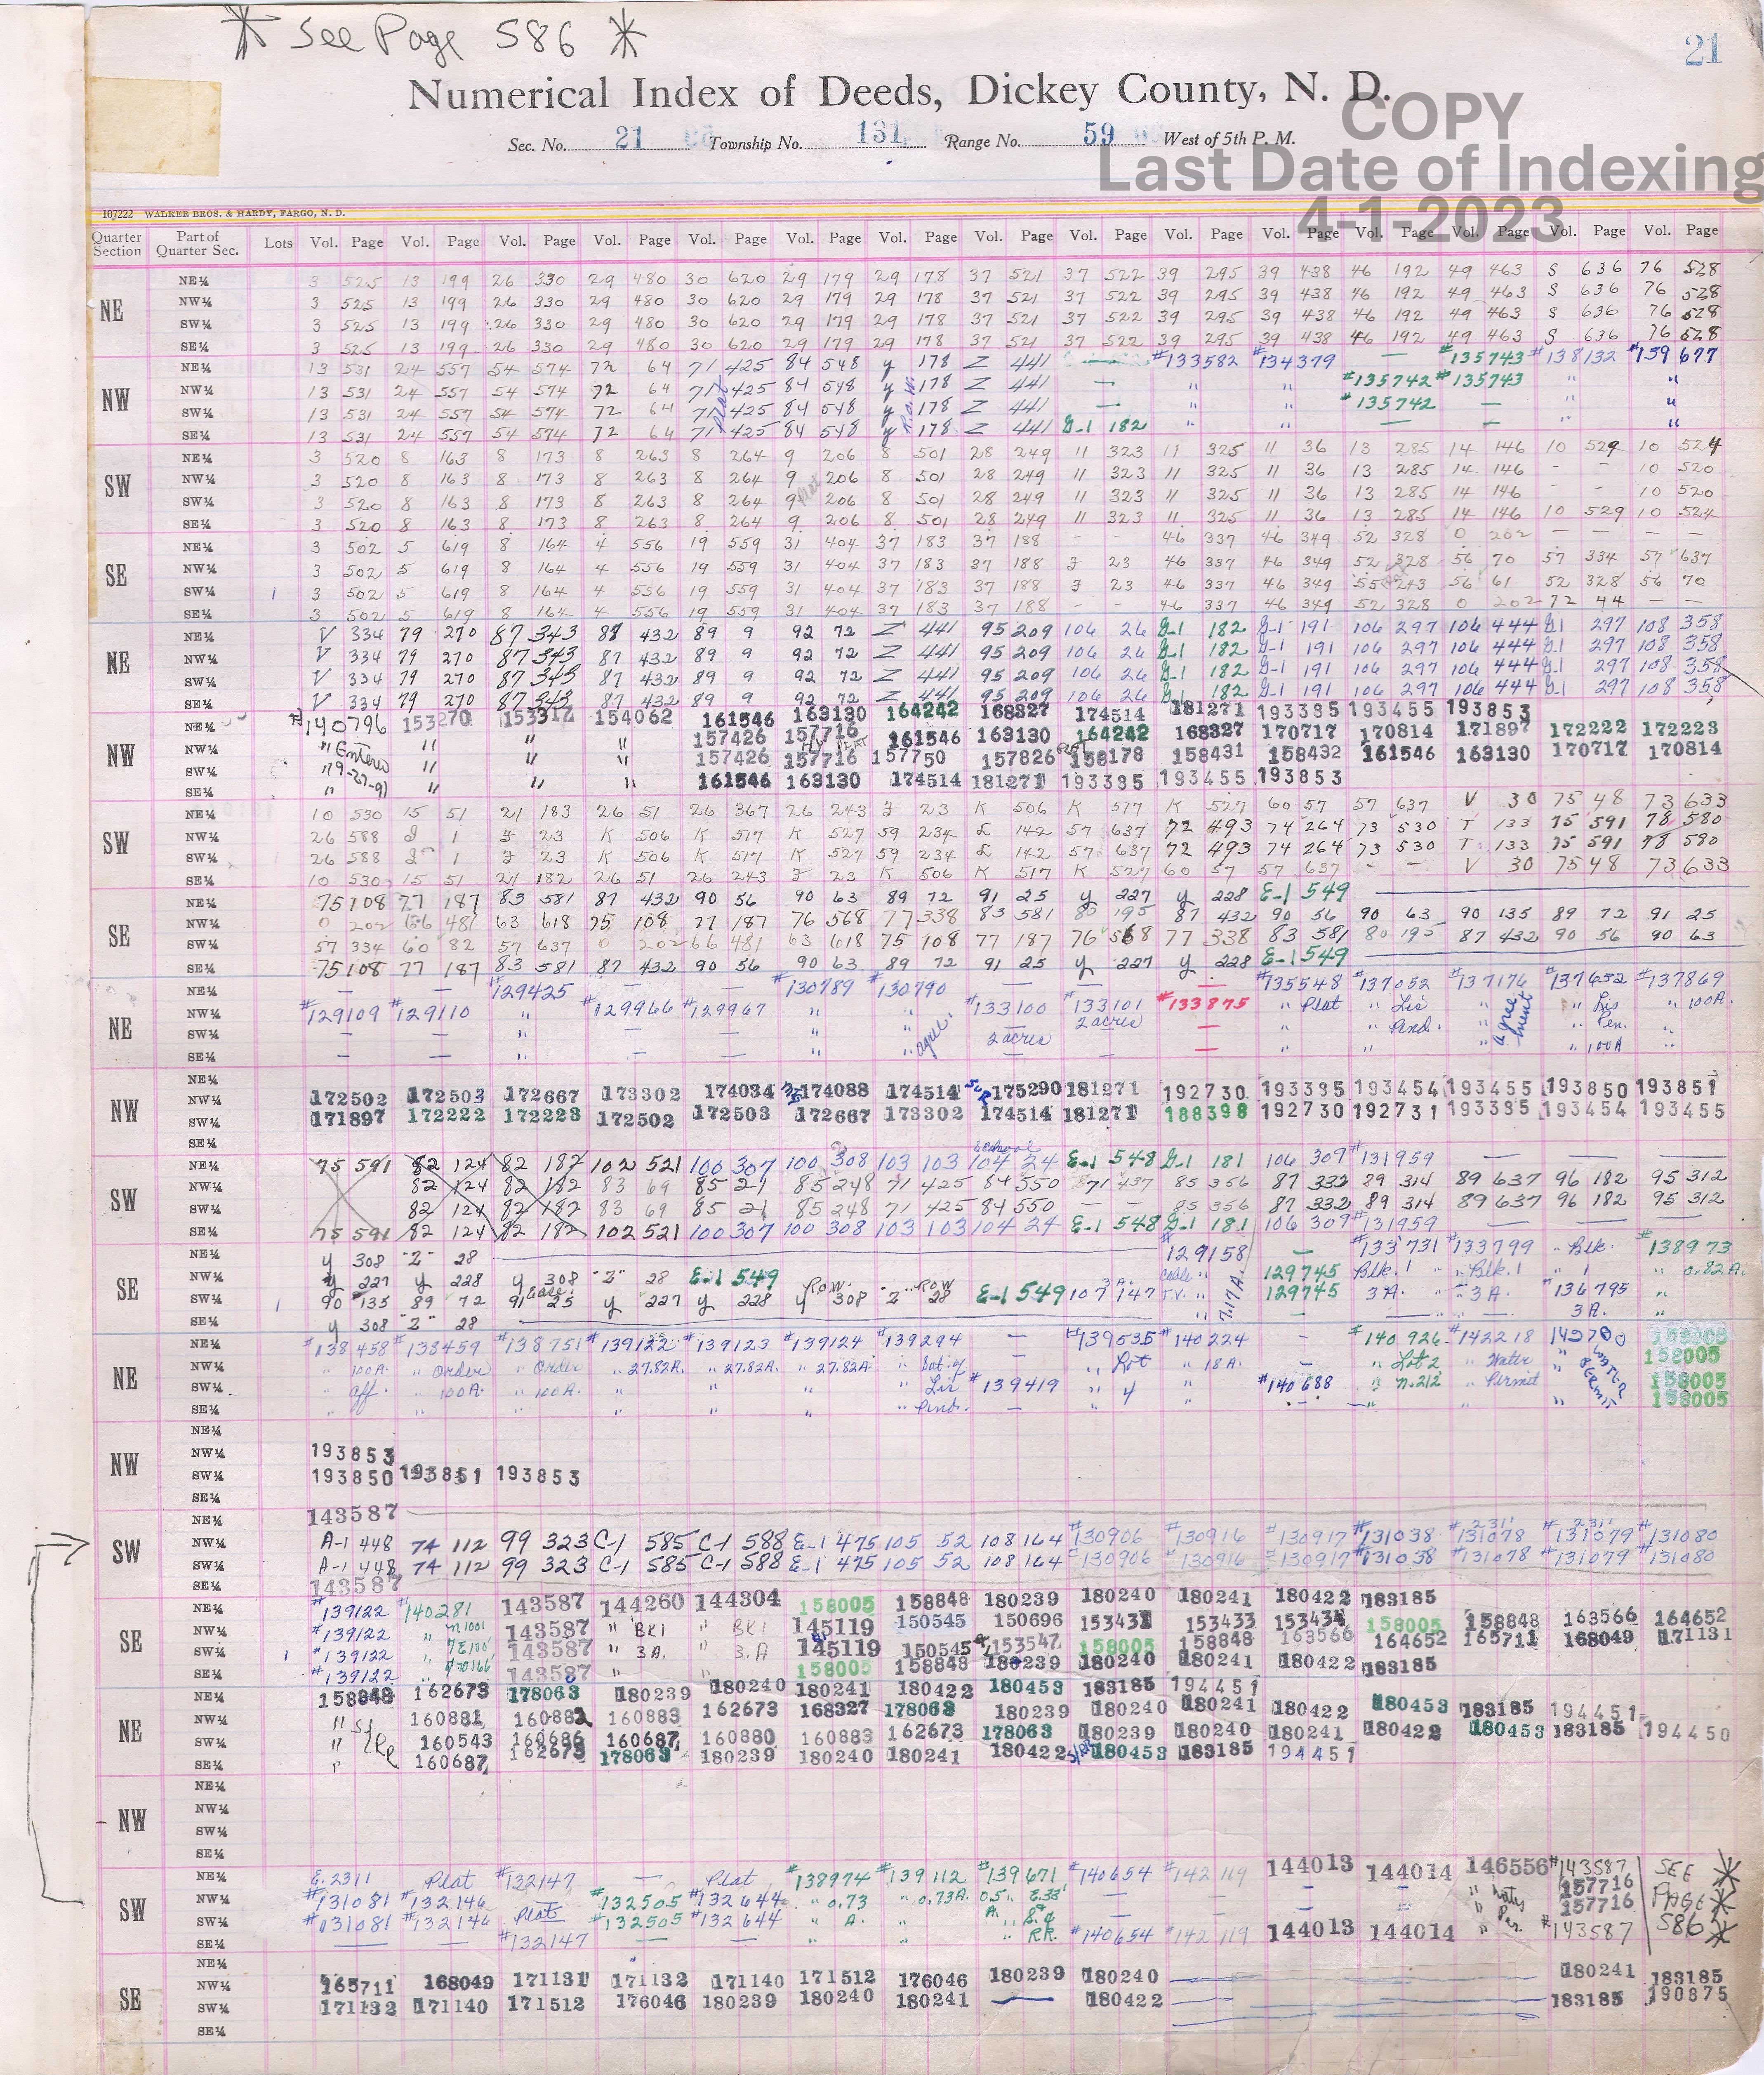 * See Page 586 *
21
Numerical Index of Deeds, Dickey County, N. D.
COPY
Sec. No. 21 Township No. 131 Range No. 59 West of 5th P. M.
Last Date of Indexing
4-1-2023
107222 WALKER BROS. & HARDY, FARGO, N. D.
Quarter Section Part of Quarter Sec. Lots Vol. Page Vol. Page Vol. Page Vol. Page Vol. Page Vol. Page Vol. Page Vol. Page Vol. Page Vol. Page Vol. Page Vol. Page Vol. Page Vol. Page Vol. Page
NE NE¼ 3 525 13 199 26 330 29 480 30 620 29 179 29 178 37 521 37 522 39 295 39 438 46 192 49 463 S 636 76 528
NW¼ 3 525 13 199 26 330 29 480 30 620 29 179 29 178 37 521 37 522 39 295 39 438 46 192 49 463 S 636 76 528
SW¼ 3 525 13 199 26 330 29 480 30 620 29 179 29 178 37 521 37 522 39 295 39 438 46 192 49 463 S 636 76 528
SE¼ 3 525 13 199 26 330 29 480 30 620 29 179 29 178 37 521 37 522 39 295 39 438 46 192 49 463 S 636 76 528
NW NE¼ 13 531 24 557 54 574 72 64 71 425 84 548 y 178 Z 441 — #133582 #134379 — #135743 #138132 #139677
NW¼ 13 531 24 557 54 574 72 64 71 425 84 548 y 178 Z 441 — " " #135742 #135743 " "
SW¼ 13 531 24 557 54 574 72 64 71 Plat 425 84 548 y R.O.W. 178 Z 441 — " " #135742 — " "
SE¼ 13 531 24 557 54 574 72 64 71 425 84 548 y 178 Z 441 G-1 182 " " — — " "
SW NE¼ 3 520 8 163 8 173 8 263 8 264 9 206 8 501 28 249 11 323 11 325 11 36 13 285 14 146 10 529 10 524
NW¼ 3 520 8 163 8 173 8 263 8 264 9 206 8 501 28 249 11 323 11 325 11 36 13 285 14 146 - - 10 520
SW¼ 3 520 8 163 8 173 8 263 8 264 9 206 8 501 28 249 11 323 11 325 11 36 13 285 14 146 - - 10 520
SE¼ 3 520 8 163 8 173 8 263 8 264 9 206 8 501 28 249 11 323 11 325 11 36 13 285 14 146 10 529 10 524
SE NE¼ 3 502 5 619 8 164 4 556 19 559 31 404 37 183 37 188 - - 46 337 46 349 52 328 0 202 — — — —
NW¼ 3 502 5 619 8 164 4 556 19 559 31 404 37 183 37 188 J 23 46 337 46 349 52 328 56 70 57 334 57 637
SW¼ 1 3 502 5 619 8 164 4 556 19 559 31 404 37 183 37 188 J 23 46 337 46 349 55 243 56 61 52 328 56 70
SE¼ 3 502 5 619 8 164 4 556 19 559 31 404 37 183 37 188 - - 46 337 46 349 52 328 0 202 72 44 — —
NE NE¼ V 334 79 270 87 343 87 432 89 9 92 72 Z 441 95 209 106 26 G-1 182 G-1 191 106 297 106 444 G-1 297 108 358
NW¼ V 334 79 270 87 343 87 432 89 9 92 72 Z 441 95 209 106 26 G-1 182 G-1 191 106 297 106 444 G-1 297 108 358
SW¼ V 334 79 270 87 343 87 432 89 9 92 72 Z 441 95 209 106 26 G-1 182 G-1 191 106 297 106 444 G-1 297 108 358
SE¼ V 334 79 270 87 343 87 432 89 9 92 72 Z 441 95 209 106 26 G-1 182 G-1 191 106 297 106 444 G-1 297 108 358
NW NE¼ #140796 153270 153317 154062 161546 163130 164242 168327 174514 181271 193335 193455 193853
NW¼ " Entered " " " 157426 157716 161546 163130 164242 168327 170717 170814 171897 172222 172223
SW¼ " 9-27-91 " " " 157426 157716 157750 157826 158178 158431 158432 161546 163130 170717 170814
SE¼ " " " " 161546 163130 174514 181271 193335 193455 193853
SW NE¼ 10 530 15 51 21 183 26 51 26 367 26 243 J 23 K 506 K 517 K 527 60 57 57 637 V 30 75 48 73 633
NW¼ 26 588 J 1 J 23 K 506 K 517 K 527 59 234 L 142 57 637 72 493 74 264 73 530 T 133 75 591 78 580
SW¼ 26 588 J 1 J 23 K 506 K 517 K 527 59 234 L 142 57 637 72 493 74 264 73 530 T 133 75 591 78 580
SE¼ 10 530 15 51 21 182 26 51 26 243 J 23 K 506 K 517 K 527 60 57 57 637 - - V 30 75 48 73 633
SE NE¼ 75 108 77 187 83 581 87 432 90 56 90 63 89 72 91 25 y 227 y 228 E-1 549
NW¼ 0 202 66 481 63 618 75 108 77 187 76 568 77 338 83 581 80 195 87 432 90 56 90 63 90 135 89 72 91 25
SW¼ 57 334 60 82 57 637 0 202 66 481 63 618 75 108 77 187 76 568 77 338 83 581 80 195 87 432 90 56 90 63
SE¼ 75 108 77 187 83 581 87 432 90 56 90 63 89 72 91 25 y 227 y 228 E-1 549
NE NE¼ — — #129425 — — #130789 #130790 — — — #135548 #137052 #137176 #137652 #137869
NW¼ #129109 #129110 " #129966 #129967 " " #133100 #133101 #133875 " Plat " Lis " agreement " Lis " 100A.
SW¼ — — " — — " " agree. 2 acres 2 acres — " " Pend. " " Pen. "
SE¼ — — " — — " " — — — " " " " 100A "
NW NE¼
NW¼ 172502 172503 172667 173302 174034 174088 174514 175290 181271 192730 193335 193454 193455 193850 193851
SW¼ 171897 172222 172223 172502 172503 172667 173302 174514 181271 188398 192730 192731 193335 193454 193455
SE¼
SW NE¼ 75 591 82 124 82 182 102 521 100 307 100 308 103 103 School 104 24 E-1 548 G-1 181 106 309 #131959 — — —
NW¼ 82 124 82 182 83 69 85 21 85 248 71 425 84 550 71 437 85 356 87 332 89 314 89 637 96 182 95 312
SW¼ 82 124 82 182 83 69 85 21 85 248 71 425 84 550 — 85 356 87 332 89 314 89 637 96 182 95 312
SE¼ 75 591 82 124 82 182 102 521 100 307 100 308 103 103 104 24 E-1 548 G-1 181 106 309 #131959 — — —
SE NE¼ y 308 "Z" 28 #129158 — #133731 #133799 " Blk. #138973
NW¼ y 227 y 228 y 308 "Z" 28 E-1 549 Cable " 129745 Blk. 1 " Blk. 1 " 1 " 0.82 A.
SW¼ 1 90 135 89 72 91 25 y 227 y 228 y R.O.W. 308 "Z" ROW 28 E-1 549 107 3 A. 147 T.V. " 7.17 A. 129745 3 A. " 3 A. #136795 "
SE¼ y 308 "Z" 28 " — — " " 3 A. "
NE NE¼ #138458 #138459 #138751 #139122 #139123 #139124 #139294 — #139535 #140224 - #140926 #142218 142780 158005
NW¼ " 100A. " Order " Order " 27.82A. " 27.82A. " 27.82A " Sat. of " Lot " 18 A. — " Lot 2 " Water " Water 158005
SW¼ " aff. " 100A. " 100A. " " " " Lis #139419 " 4 " #140688 " N.212' " Permit " Permit 158005
SE¼ " " " " " " " Pend. — " " — " " " 158005
NW NE¼
NW¼ 193853
SW¼ 193850 193851 193853
SE¼
SW NE¼ 143587
NW¼ A-1 448 74 112 99 323 C-1 585 C-1 588 E-1 475 105 52 108 164 #130906 #130916 #130917 #131038 #131078 #131079 #131080
SW¼ A-1 448 74 112 99 323 C-1 585 C-1 588 E-1 475 105 52 108 164 #130906 #130916 #130917 #131038 #131078 #131079 #131080
SE¼ 143587
SE NE¼ #139122 #140281 143587 144260 144304 158005 158848 180239 180240 180241 180422 183185
NW¼ #139122 " N1001 143587 " BK1 " BK1 145119 150545 150696 153431 153433 153434 158005 158848 163566 164652
SW¼ 1 #139122 " 143587 " 3A. " 3.A 145119 150545 153547 158005 158848 163566 164652 165711 168049 171131
SE¼ #139122 " 143587 " " 158005 158848 180239 180240 180241 180422 183185
NE NE¼ 158848 162673 178063 180239 180240 180241 180422 180453 183185 194451
NW¼ " 160881 160882 160883 162673 168327 178063 180239 180240 180241 180422 180453 183185 194451
SW¼ " 160543 160686 160687 160880 160883 162673 178063 180239 180240 180241 180422 180453 183185 194450
SE¼ " 160687 162673 178063 180239 180240 180241 180422 180453 183185 194451
NW NE¼
NW¼
SW¼
SE¼
SW NE¼ E. 2311 Plat #132147 — Plat #138974 #139112 #139671 #140654 #142119 144013 144014 146556 #143587 SEE
NW¼ #131081 #132146 #132505 #132644 " 0.73 " 0.73A. 0.5 " E.33' — — — — " 157716 PAGE
SW¼ #131081 #132146 Plat #132505 #132644 " A. " A. " — — — — " Per. 157716 586
SE¼ — — #132147 — — " " " RR. #140654 #142119 144013 144014 " #143587
SE NE¼
NW¼ 165711 168049 171131 171132 171140 171512 176046 180239 180240 180241 183185
SW¼ 171132 171140 171512 176046 180239 180240 180241 — 180422 183185 190875
SE¼